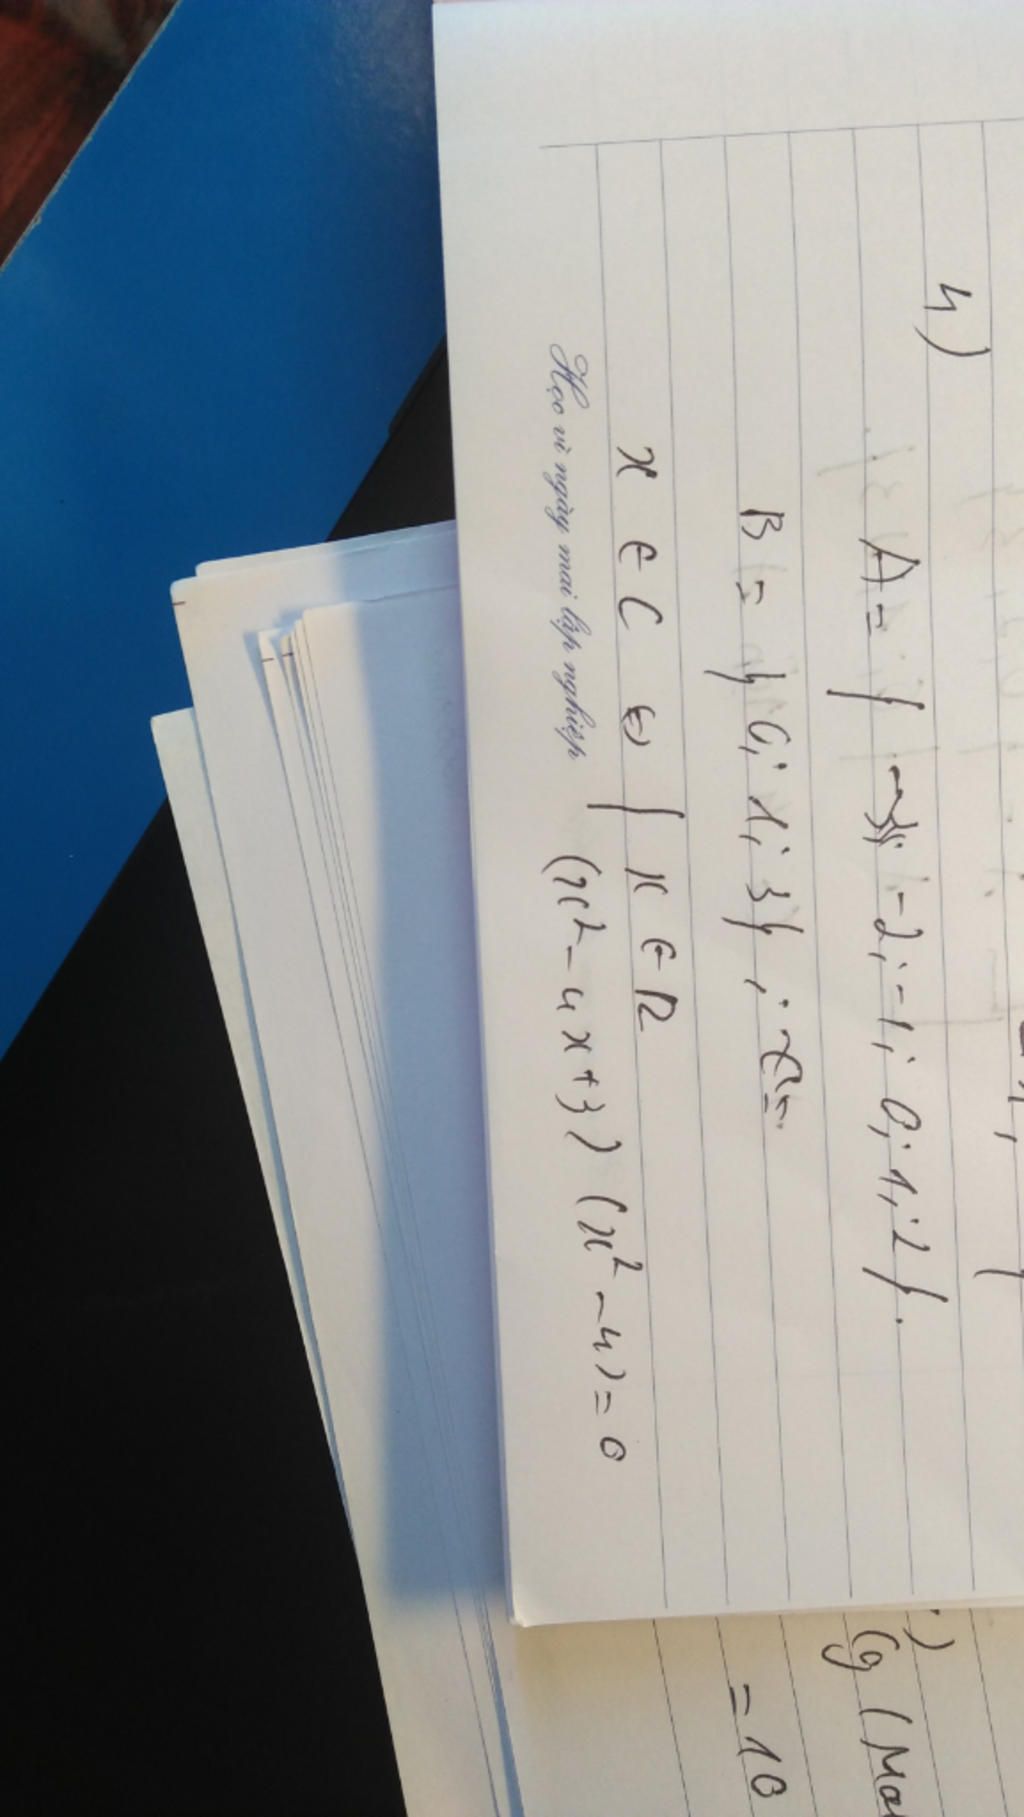 4)
A = { -2; -1; 0; 1; 2 }.
B = { 0; 1; 3 } ; x =
x ∈ C ⇔ { x ∈ R
(x² - 4x + 3) (x² - 4) = 0
Học vì ngày mai lập nghiệp
= 10